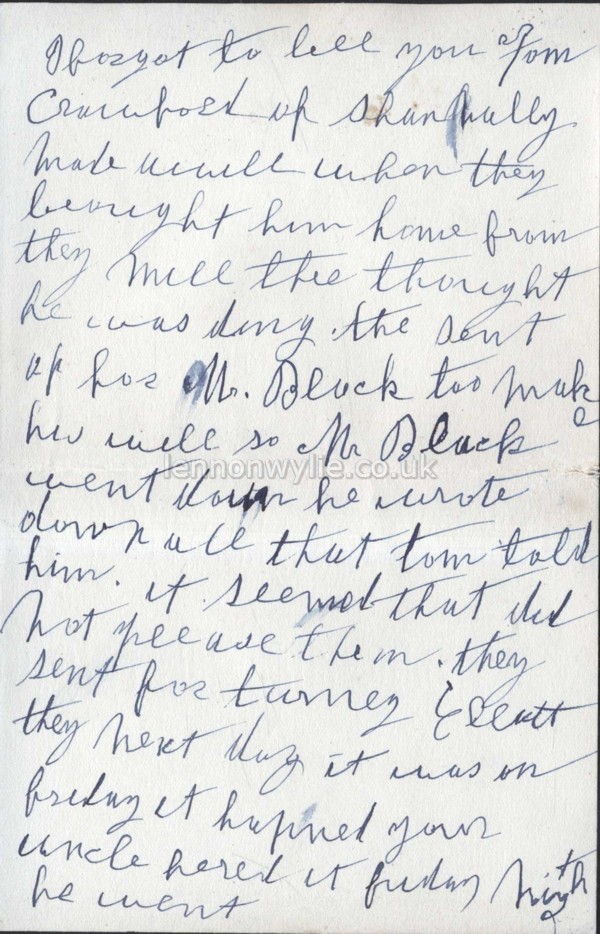 I forgot to tell you Tom
Crawford of Shanhally
made a will when they
brought him home from
they mill thee thought
he was ding. the sent
up for Mr. Black too make
his will so Mr Black
lennonwylie.co.uk
went down he wrote
down all that tom told
him. it seemed that did
not pleease them. they
sent for turney Eleatt
they next day it was on
friday it hapined your
uncle hered it friday nigth
he went